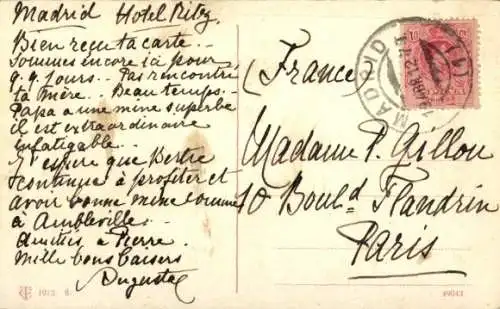 Madrid Hotel Ritz
Bien reçu ta carte..
Sommes encore ici pour
q.q. jours.. Pas rencontré
ta mère.. Beau temps..
Papa a une mine superbe
il est extraordinaire
infatigable..
J'espère que Bertre
continue à profiter et
avoir bonne mine comme
à Ambleville.
Amitiés à Pierre.
Mille bons baisers
Auguste
(France)
Madame P. Gillou
10 Bould Flandrin
Paris
MADRID
10
1913. 8.
49043